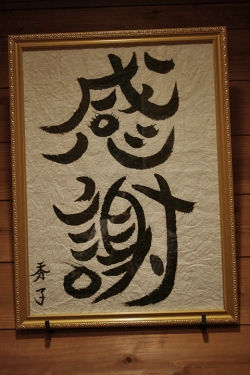 感謝
秀子